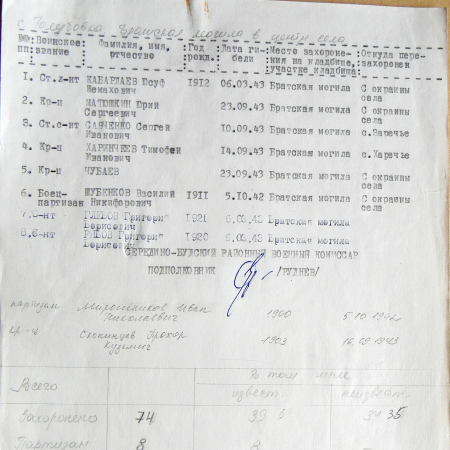 братская могила в центре села
№№ Воинское Фамилия, имя, Год Дата ги- Место захороне- Откуда пере-
пп звание отчество рожд. бели ния на кладбище, захоронен
участке кладбища
1. Ст.л-нт КАБАРДАЕВ Юсуф 1912 06.03.43 Братская могила С окраины
Немахович села
2. Кр-ц МАТЮШКИН Юрий 23.09.43 Братская могила С окраины
Сергеевич села
3. Ст.с-нт САВЧЕНКО Сергей 10.09.43 Братская могила с.Заречье
Иванович
4. Кр-ц ХАРИНЧЕЕВ Тимофей 14.09.43 Братская могила с.Харечье
Иванович
5. Кр-ц ЧУБАЕВ 23.09.43 Братская могила С окраины
села
6. Боец- ШУБЕНКОВ Василий 1911 5.10.42 Братская могила С окраины
партизан Никифорович села
Григори 1921 Братская могила
Борисович
Григори 1920 Братская могила
Борисович
СЕРЕДИНО-БУДСКИЙ РАЙОННЫЙ ВОЕННЫЙ КОМИССАР
ПОДПОЛКОВНИК /РУДНЕВ/
партизан Мирошников Иван 1900 5.10.1942
Николаевич
Кр-ц Скопинцев Прохор 1903 16.09.1943
Кузьмич
в том числе
Всего извест. неизвест.
Захоронено 74 39 35
Партизан 8 8